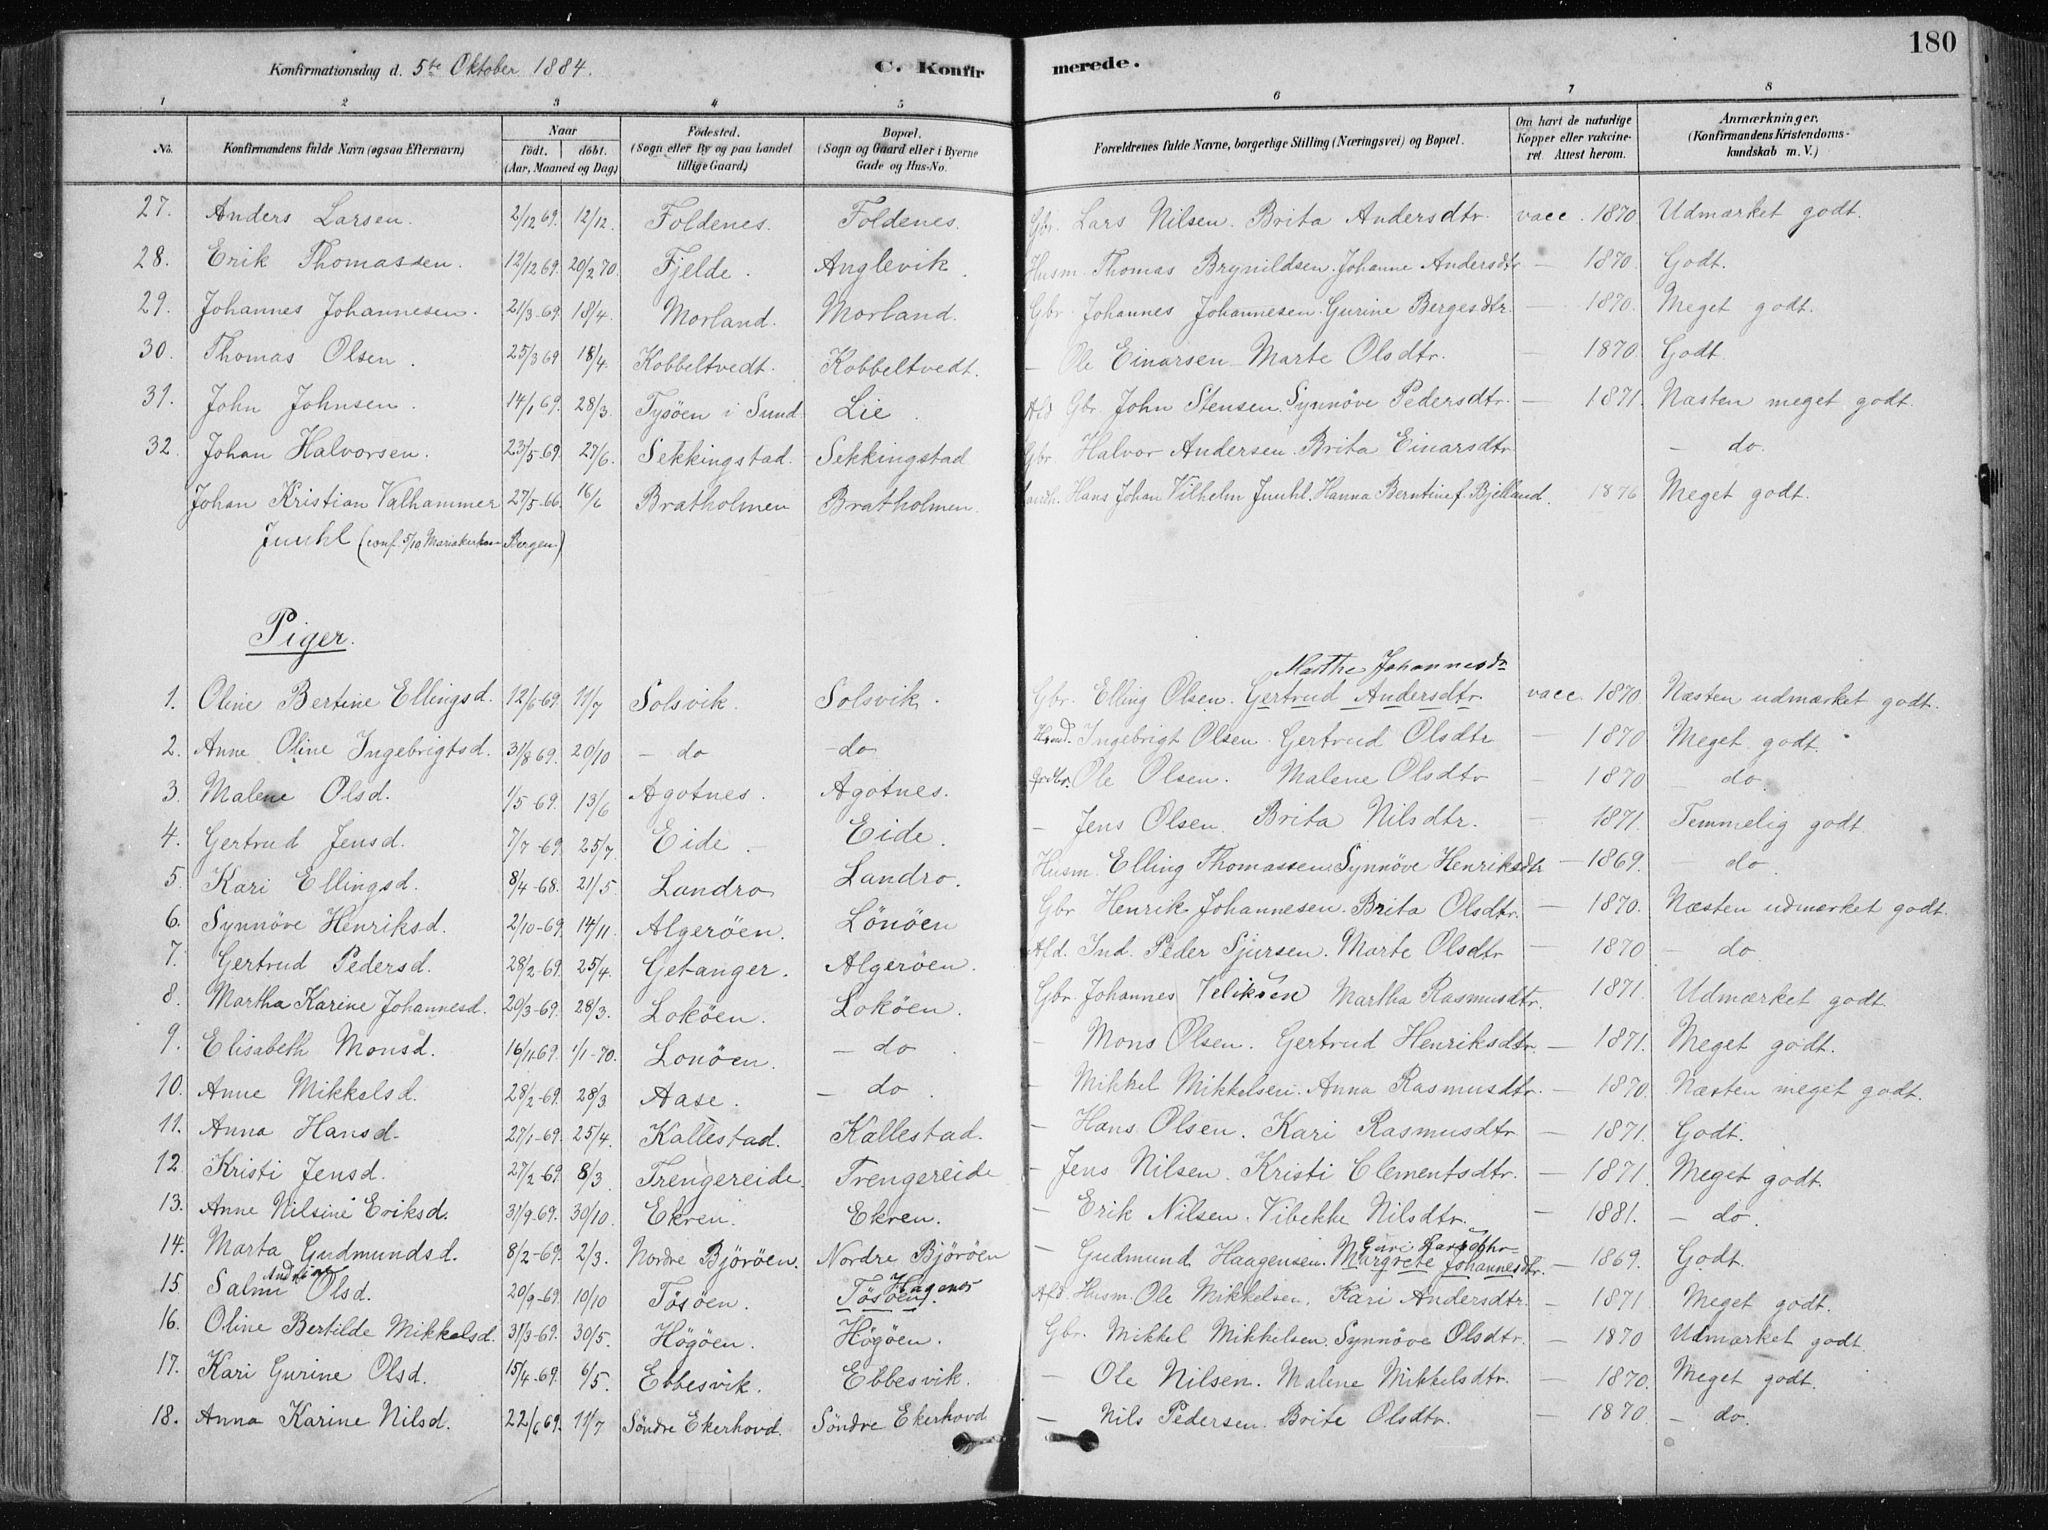 180
Konfirmationsdag d. 5te Oktober 1884. C. Konfirmerede.
1 2 3 4 5 6 7 8
No. Konfirmandens fulde Navn (ogsaa Efternavn) Naar født. døbt. (Aar, Maaned og Dag) Fødested. (Sogn eller By og paa Landet tillige Gaard) Bopæl. (Sogn og Gaard eller i Byerne Gade og Hus-No. Forældrenes fulde Navne, borgerlige Stilling (Næringsvei) og Bopæl. Om havt de naturlige Kopper eller vakcineret Attest herom. Anmærkninger. (Konfirmandens Kristendomskundskab m. V.)
27. Anders Larsen. 2/12 69. 12/12. Foldenes. Foldenes. Gbr. Lars Nilsen. Brita Andersdtr. vacc. 1870. Udmærket godt.
28. Erik Thomassen. 12/12 69. 20/2 70. Fjelde. Anglevik. Husm. Thomas Brynildsen. Johanne Andersdtr — 1870. Godt.
29. Johannes Johannesen. 21/3-69. 18/4. Morland. Morland. Gbr. Johannes Johannesen. Gurine Bergesdtr. — 1870. Meget godt.
30. Thomas Olsen. 25/3 69 18/4. Kobbeltvedt. Kobbeltvedt. — Ole Einarsen Marte Olsdtr. — 1870. Godt.
31. John Johnsen. 14/1 69. 28/3. Tysöen i Sund. Lie. Afd Gbr. John Stensen. Synnöve Pedersdtr. — 1871. Næsten meget godt.
32. Johan Halvorsen. 23/5-69. 27/6. Sekkingstad. Sekkingstad Gbr. Halvor Andersen. Brita Einarsdtr. — do.
Johan Kristian Valhammer 27/5-66. 16/6 Bratholmen Bratholmen. Landh. Hans Johan Vilhelm Juuhl. Hanna Berntine f. Bjelland. 1876 Meget godt.
Juuhl (conf. 5/10 Mariakirken Bergen)
Piger.
Marthe Johannesdr
1. Oline Bertine Ellingsd. 12/6-69. 11/7 Solsvik. Solsvik. Gbr. Elling Olsen. Gertrud Andersdtr vacc. 1870. Næsten udmærket godt.
2. Anne Oline Ingebrigtsd. 31/8 69. 20/10 — do — do Ingebrigt Olsen. Gertrud Olsdtr — 1870 Meget godt.
3. Malene Olsd. 1/5-69. 13/6 Agotnes. Agotnes. Ole Olsen. Malene Olsdtr — 1870 — do.
4. Gertrud Jensd. 7/7-69. 25/7. Eide. Eide. — Jens Olsen. Brita Nilsdtr. — 1871. Temmelig godt.
5. Kari Ellingsd. 8/4-68. 21/5. Landro Landro. Husm. Elling Thomassen. Synnöve Henriksdtr — 1869. — do.
6. Synnöve Henriksd. 2/10-69. 14/11. Algeröen. Lönöen Gbr Henrik Johannesen. Brita Olsdtr. — 1870. Næsten udmærket godt.
7. Gertrud Pedersd. 28/2-69. 25/4. Getanger. Algeröen. Afd. Ind. Peder Sjursen. Marte Olsdtr — 1870 — do.
8. Martha Karine Johannesd. 20/3-69. 28/3. Loköen. Loköen. Gbr. Johannes Veliksen Martha Rasmusdtr. — 1871. Udmærket godt
9. Elisabeth Monsd. 16/11-69. 1/1-70. Lonöen. — do. — Mons Olsen. Gertrud Henriksdtr. — 1871. Meget godt.
10. Anne Mikkelsd. 28/2-69. 28/3. Aase. — do. — Mikkel Mikkelsen. Anna Rasmusdtr. — 1870. Næsten meget godt.
11. Anna Hansd. 27/1-69. 25/4. Kallestad. Kallestad. — Hans Olsen. Kari Rasmusdtr — 1871. Godt.
12. Kristi Jensd. 27/2-69. 8/3. Trengereide. Trengereide — Jens Nilsen. Kristi Clementsdtr. — 1871. Meget godt.
13. Anne Nilsine Eriksd. 31/9-69. 30/10. Ekren. Ekren. — Erik Nilsen. Vibekke Nilsdtr. — 1881. — do.
14. Marta Gudmundsd. 8/2-69. 2/3. Nordre Björöen. Nordre Björöen — Gudmund Haagensen. Margrete Johannesdtr. — 1869. Godt.
15. Salmi Andria Olsd. 20/9-69. 10/10 Tösöen. Tösöen. Hagenes Afd. Husm. Ole Mikkelsen. Kari Andersdtr. — 1871 Meget godt.
16. Oline Bertilde Mikkelsd. 31/3-69. 30/5. Högöen. Högöen. Gbr. Mikkel Mikkelsen. Synnöve Olsdtr. — 1870 Udmærket godt.
17. Kari Gurine Olsd. 15/4-69. 6/5. Ebbesvik. Ebbesvik. — Ole Nilsen. Malene Mikkelsdtr. — 1870. Meget godt.
18. Anna Karine Nilsd. 22/6 69. 11/7 Söndre Ekerhovd. Söndre Ekerhovd — Nils Pedersen. Brite Olsdtr. — 1870. — do.